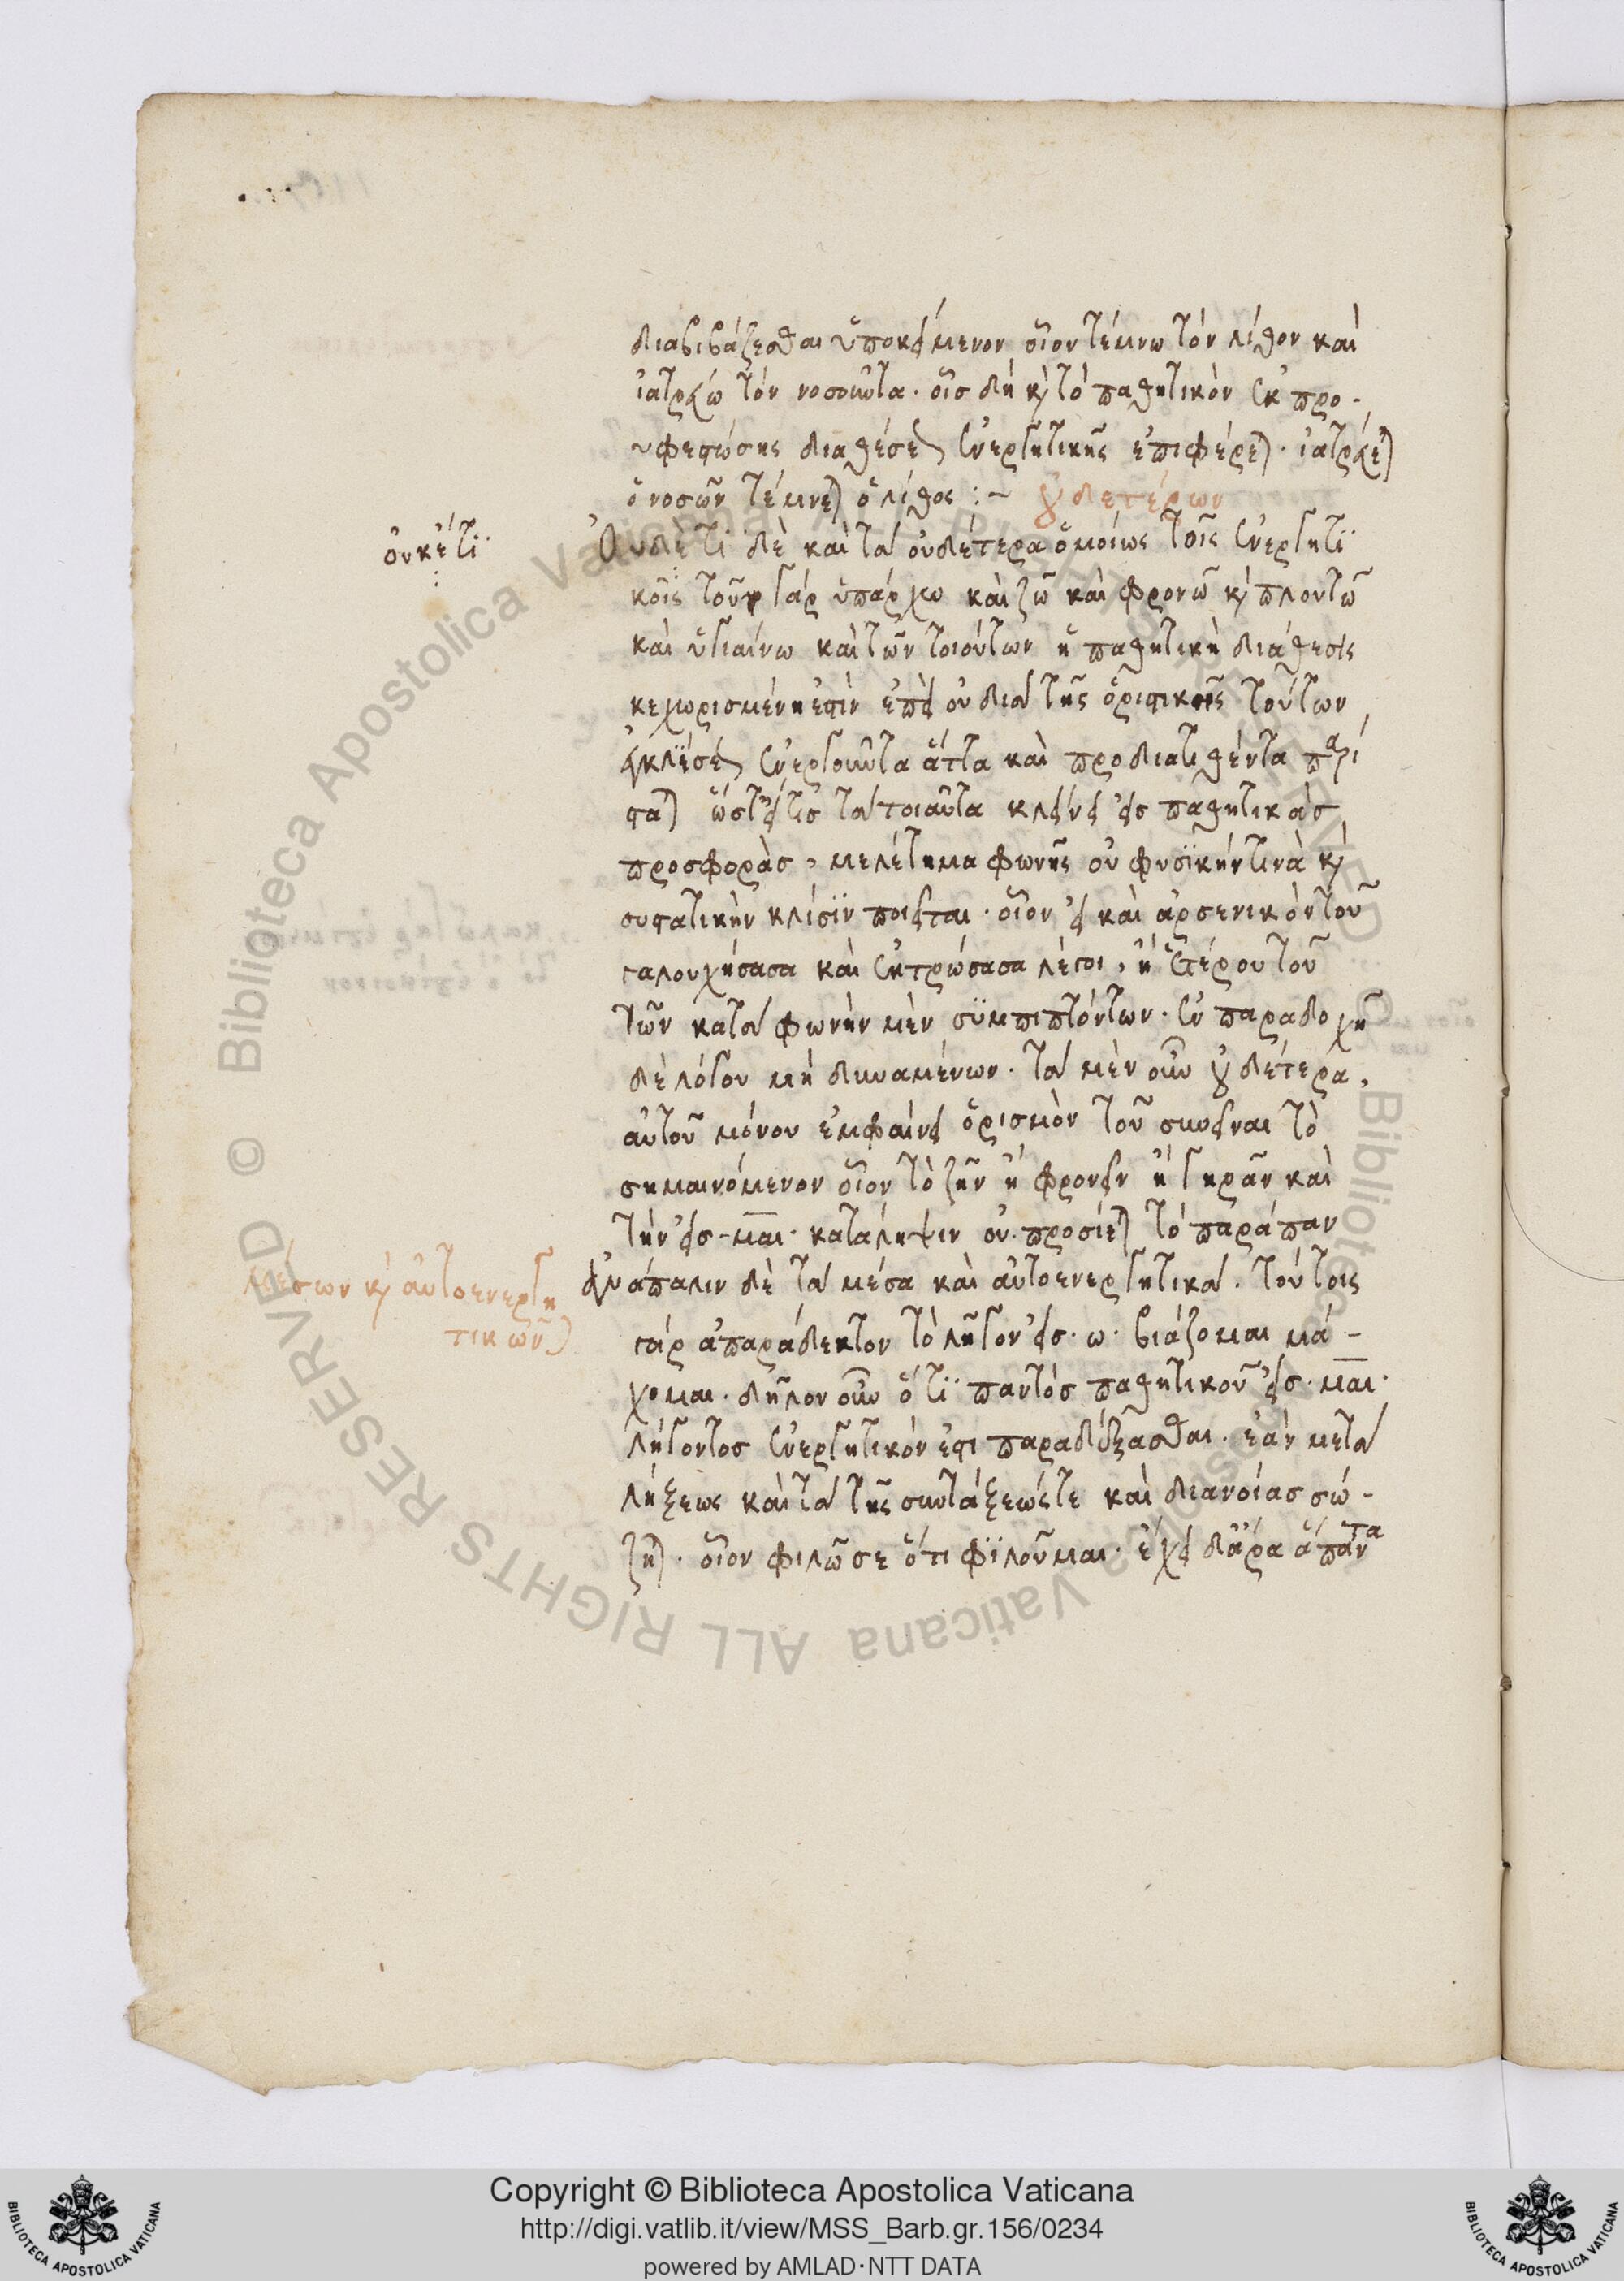 διαβιβάζεσθαι ὑποκείμενον οἷον τέμνω τὸν λίθον καὶ
ἰατρεύω τὸν νοσοῦντα. οἷς δὴ κ̀ τὸ παθητικὸν ἐκ προ-
υφεστώσης διαθέσεως ἐνεργητικῆς ἐπιφέρεται. ἰατρεύεται
ὁ νοσῶν τέμνεται ὁ λίθος :~ οὐδετέρων
οὐκέτϊ
Οὐδέτι δὲ καὶ τὰ οὐδέτερα ὁμοίως τοῖς ἐνεργητϊ
κοῖς τοῦ γὰρ ὑπάρχω καὶ ζῶ καὶ φρονῶ κ̀ πλουτῶ
καὶ ὑγιαίνω καὶ τῶν τοιούτων ἡ παθητικὴ διάθεσις
κεχωρισμένη ἐστὶν ἐπεὶ οὐ διὰ τῆς ὁριστικῆς τούτων
ἐγκλίσεως ἐνεργοῦντα ἅττα καὶ προδιατιθέντα παρί
σταται ὥστ' εἴ τις τὰ τοιαῦτα κλίνει εἰς παθητικὰς
προσφορὰς, μελέτημα φωνῆς οὐ φυσϊκήν τινὰ κ̀
συστατικὴν κλίσϊν ποιεῖται. οἷον εἰ καὶ ἀρσενικὸν τοῦ
γαλουχήσασα καὶ ἐκτρώσασα λέγοι, ἢ ἑτέρου του
τῶν κατὰ φωνὴν μὲν συμπιπτόντων. ἐν παραδοχῇ
δὲ λόγου μὴ δυναμένων. τὰ μὲν οὖν οὐδέτερα,
αὐτοῦ μόνον ἐμφαίνει ὁρισμὸν τοῦ συνεῖναι τὸ
σημαινόμενον οἷον τὸ ζῆν ἢ φρονεῖν ἢ γηρᾶν καὶ
τὴν εἰς -μαι· κατάληψιν οὐ προσίεται τὸ παράπαν
μέσων κ̀ αὐτοενεργη
τικῶν
ἀνάπαλιν δὲ τὰ μέσα καὶ αὐτοενεργητικὰ. τούτοις
γάρ ἀπαράδεκτον τὸ λῆγον εἰς· ω· βιάζομαι μά-
χομαι. δῆλον οὖν ὅτϊ παντὸς παθητικοῦ εἰς· μαι·
λήγοντος ἐνεργητικόν ἐστι παραδέξασθαι. ἐὰν μετὰ
λήξεως καὶ τὰ τῆς συντάξεώς τε καὶ διανοίας σώ-
ζηται. οἷον φιλῶ σε ὅτι φϊλοῦμαι. ἔχει δ' ἄρα ἅπαντα
Copyright © Biblioteca Apostolica Vaticana
http://digi.vatlib.it/view/MSS_Barb.gr.156/0234
powered by AMLAD·NTT DATA
© Biblioteca Apostolica Vaticana ALL RIGHTS RESERVED
BIBLIOTECA APOSTOLICA VATICANA
BIBLIOTECA APOSTOLICA VATICANA